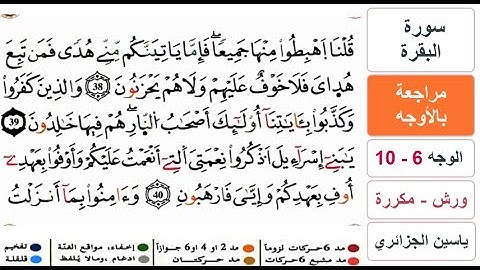 سورة
البقرة
مراجعة
بالأوجه
الوجه 6 - 10
ورش - مكررة
ياسين الجزائري
قُلْنَا اَهْبِطُواْ مِنْهَا جَمِيعاٗ فَإِمَّا يَاتِيَنَّكُم مِّنِّے هُدىٗ فَمَن تَبِعَ
هُدَايَ فَلَا خَوْفٌ عَلَيْهِمْ وَلَا هُمْ يَحْزَنُونَ 38 وَالذِينَ كَفَرُواْ
وَكَذَّبُواْ بِـَٔايَٰتِنَا أُوْلَٰٓئِكَ أَصْحَٰبُ النّ۪ارِ هُمْ فِيهَا خَٰلِدُونَ 39
يَٰبَنِےٓ إِسْرَآءِيلَ اَذْكُرُواْ نِعْمَتِيَ اَلتِےٓ أَنْعَمْتُ عَلَيْكُمْ وَأَوْفُواْ بِعَهْدِےٓ
أُوفِ بِعَهْدِكُمْ وَإِيَّٰيَ فَارْهَبُونِ 40 وَءَامِنُواْ بِمَآ أَنزَلْتُ
مد 6 حركات لزوماً مد 2 أو 4 أو 6 جوازاً إخفاء، مواقع الغنّة تفخيم
مد مشبع 6 حركات مد حركتان إدغام، ومالا يُلفظ قلقلة